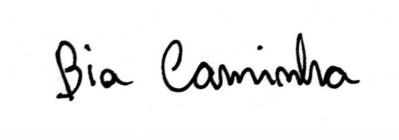 Bia Caminha